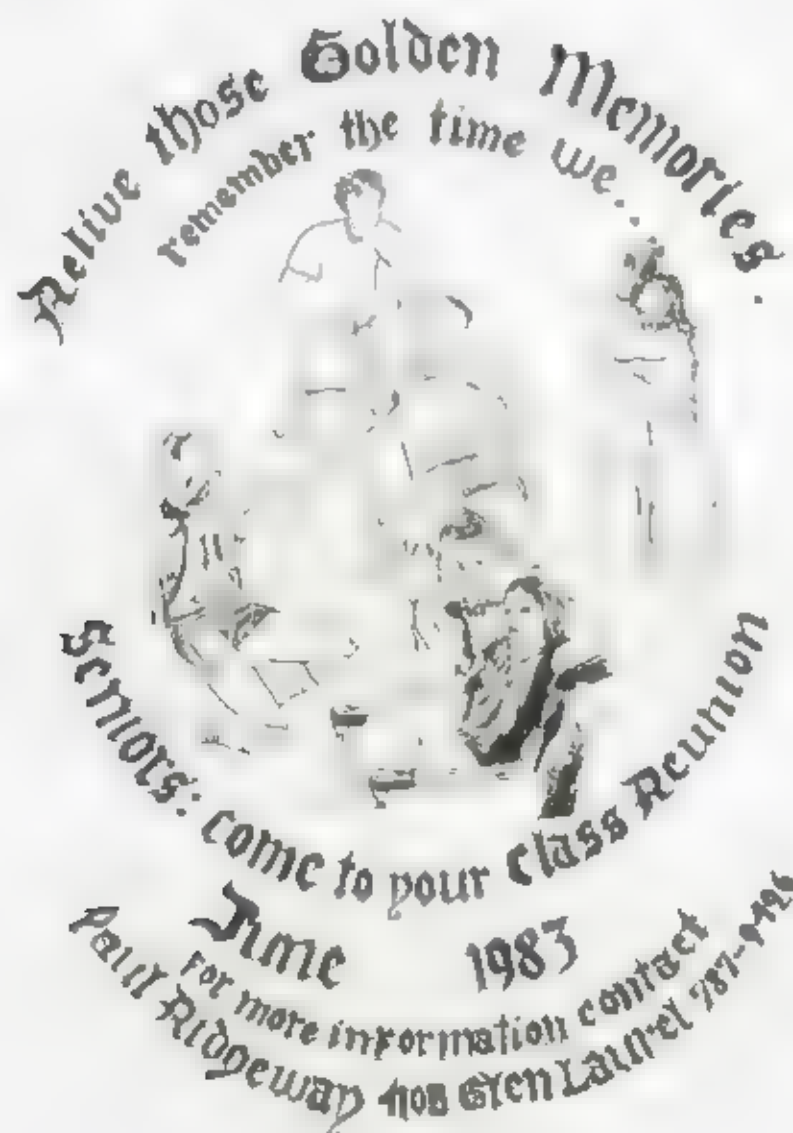 Relive those Golden Memories.
remember the time we...
Seniors: come to your Class Reunion
June 1983
For more information contact
Paul Ridgeway Glen Laurel